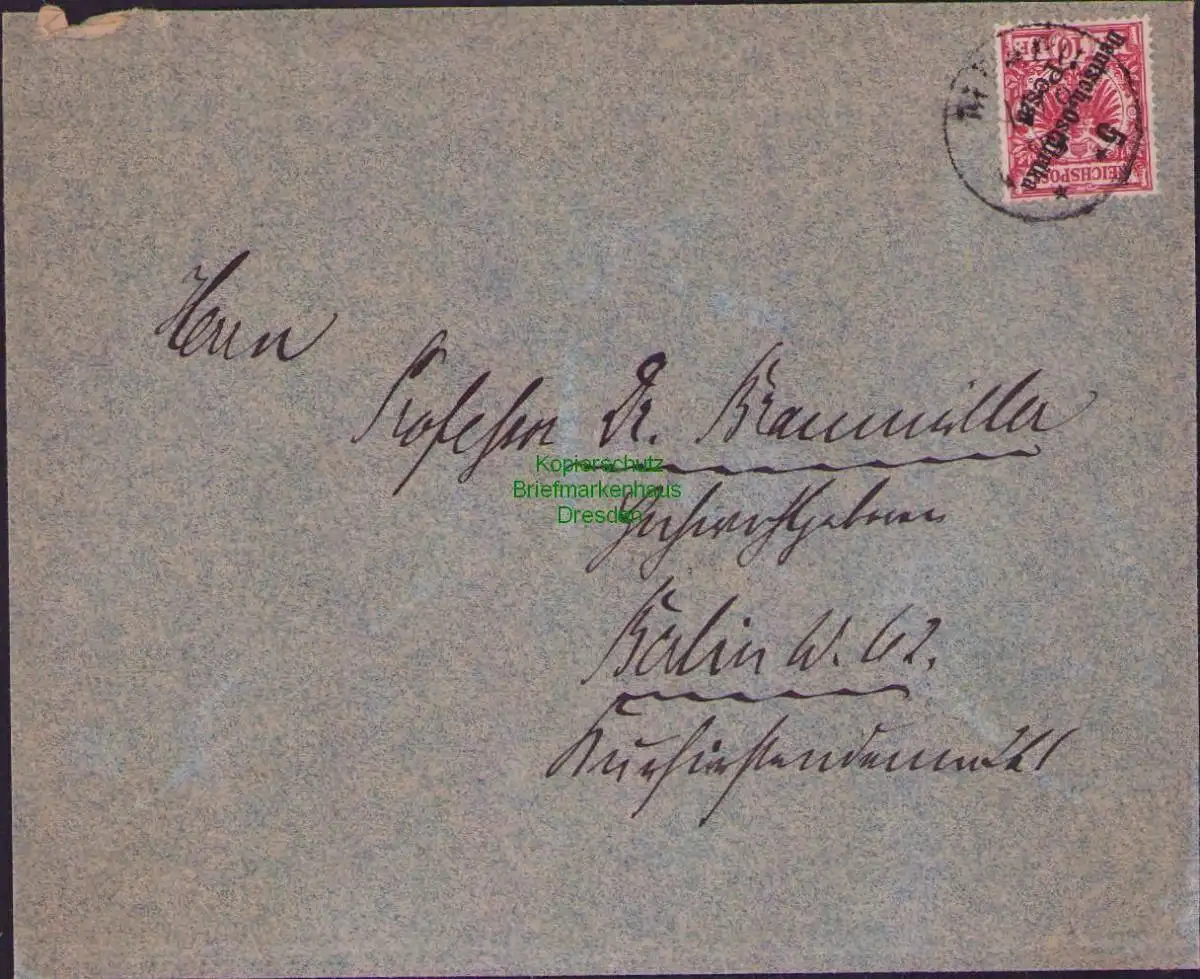 10 PF
Deutsch-Ostafrika
5
Pesa
REICHSPOST
Herrn
Professor Dr. Braumüller
Kopierschutz
Briefmarkenhaus
Dresden
Hochwohlgeboren
Berlin W. 62.
Kurfürstendamm 261